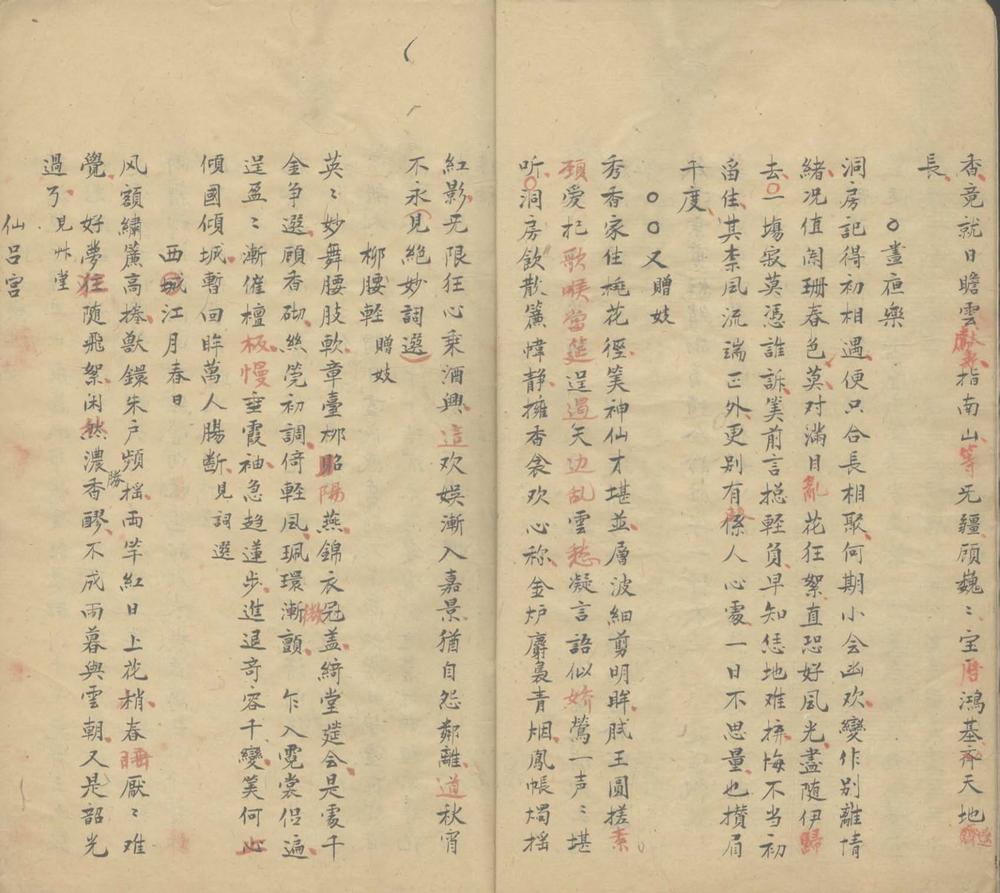 香竟就日瞻雲獻壽指南山等无疆願巍〻宝曆鴻基齊天地
長
晝夜樂
洞房記得初相遇便只合長相聚何期小会幽欢變作別離情
緒况值闌珊春色莫对滿目亂花狂絮直恐好風光盡随伊歸
去一塲寂莫憑誰訴筭前言揔輕負早知恁地难拚悔不当初
畱住其柰風流端正外更别有係人心䖏一日不思量也攅眉
千度
又贈妓
秀香家住桃花徑筭神仙才堪並層波細剪明眸膩玉圓搓素
頸愛把歌喉當筵逞遏天边乱雲愁凝言語似娇鶯一声〻堪
听洞房飲散簾幃静擁香衾欢心称金炉麝裊青烟鳳帳燭摇
紅影无限狂心乗酒興這欢娯漸入嘉景猶自怨鄰雞道秋宵
不永見絶妙詞選
柳腰輕 贈妓
英〻妙舞腰肢軟章臺柳昭陽燕錦衣冠盖綺堂筵会是䖏千
金争選顧香砌丝筦初調倚輕風珮環漸微顫 乍入霓裳侣遍
逞盈〻漸催檀板慢垂霞袖急趋蓮步進退竒容千變筭何止
傾國傾城暫回眸萬人腸断見詞選
西江月春日
风額繡簾高捲獣鐶朱户頻摇兩竿紅日上花稍春睡厭〻难
覺 好夢狂随飛絮闲愁濃勝香醪不成雨暮與雲朝又是韶光
過了見艸堂
仙吕宫